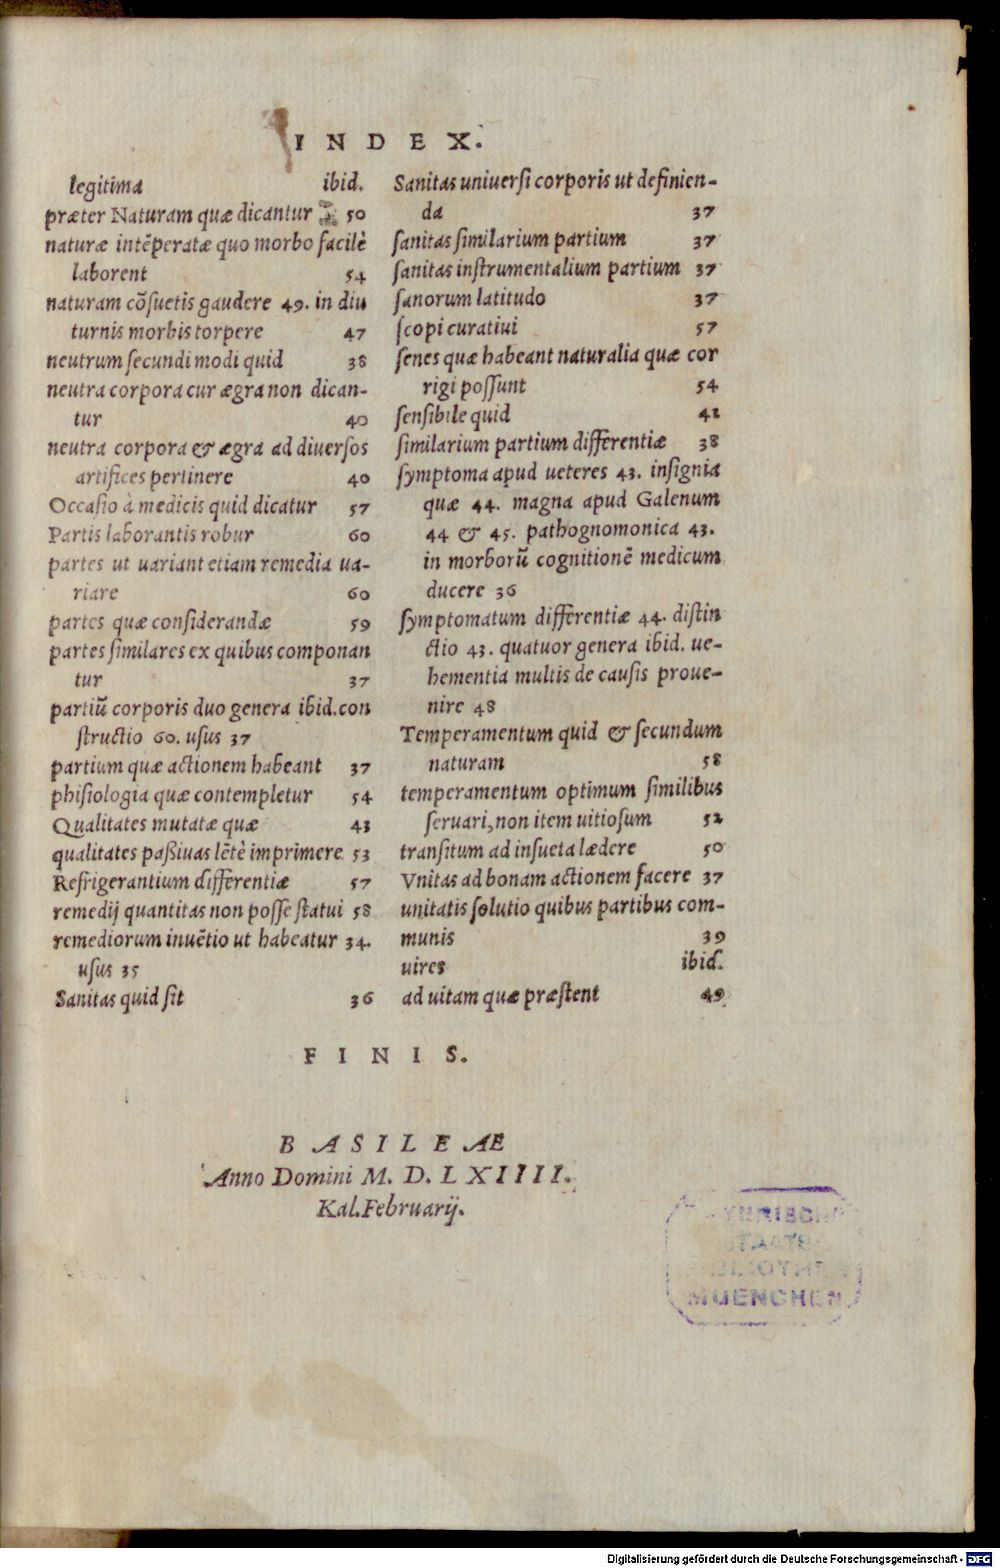 INDEX.
legitima ibid.
præter Naturam quæ dicantur 50
naturæ intẽperatæ quo morbo facilè
laborent 54
naturam cõſuetis gaudere 49. in diu
turnis morbis torpere 47
neutrum ſecundi modi quid 38
neutra corpora cur ægra non dican-
tur 40
neutra corpora & ægra ad diuerſos
artifices pertinere 40
Occaſio à medicis quid dicatur 57
Partis laborantis robur 60
partes ut uariant etiam remedia ua-
riare 60
partes quæ conſiderandæ 59
partes ſimilares ex quibus componan
tur 37
partiũ corporis duo genera ibid. con
ſtructio 60. uſus 37
partium quæ actionem habeant 37
phiſiologia quæ contempletur 54
Qualitates mutatæ quæ 43
qualitates paßiuas lẽtè imprimere 53
Refrigerantium differentiæ 57
remedij quantitas non poſſe ſtatui 58
remediorum inuẽtio ut habeatur 34.
uſus 35
Sanitas quid ſit 36
Sanitas uniuerſi corporis ut definien-
da 37
ſanitas ſimilarium partium 37
ſanitas inſtrumentalium partium 37
ſanorum latitudo 37
ſcopi curatiui 57
ſenes quæ habeant naturalia quæ cor
rigi poſſunt 54
ſenſibile quid 41
ſimilarium partium differentiæ 38
ſymptoma apud ueteres 43. inſignia
quæ 44. magna apud Galenum
44 & 45. pathognomonica 43.
in morborũ cognitionẽ medicum
ducere 36
ſymptomatum differentiæ 44. diſtin
ctio 43. quatuor genera ibid. ue-
hementia multis de cauſis proue-
nire 48
Temperamentum quid & ſecundum
naturam 58
temperamentum optimum ſimilibus
ſeruari, non item uitioſum 52
tranſitum ad inſueta lædere 50
Vnitas ad bonam actionem facere 37
unitatis ſolutio quibus partibus com-
munis 39
uires ibid.
ad uitam quæ præſtent 49
FINIS.
BASILEAE
Anno Domini M. D. LXIIII.
Kal. Februarij.
MUENCHEN
Digitalisierung gefördert durch die Deutsche Forschungsgemeinschaft - DFG